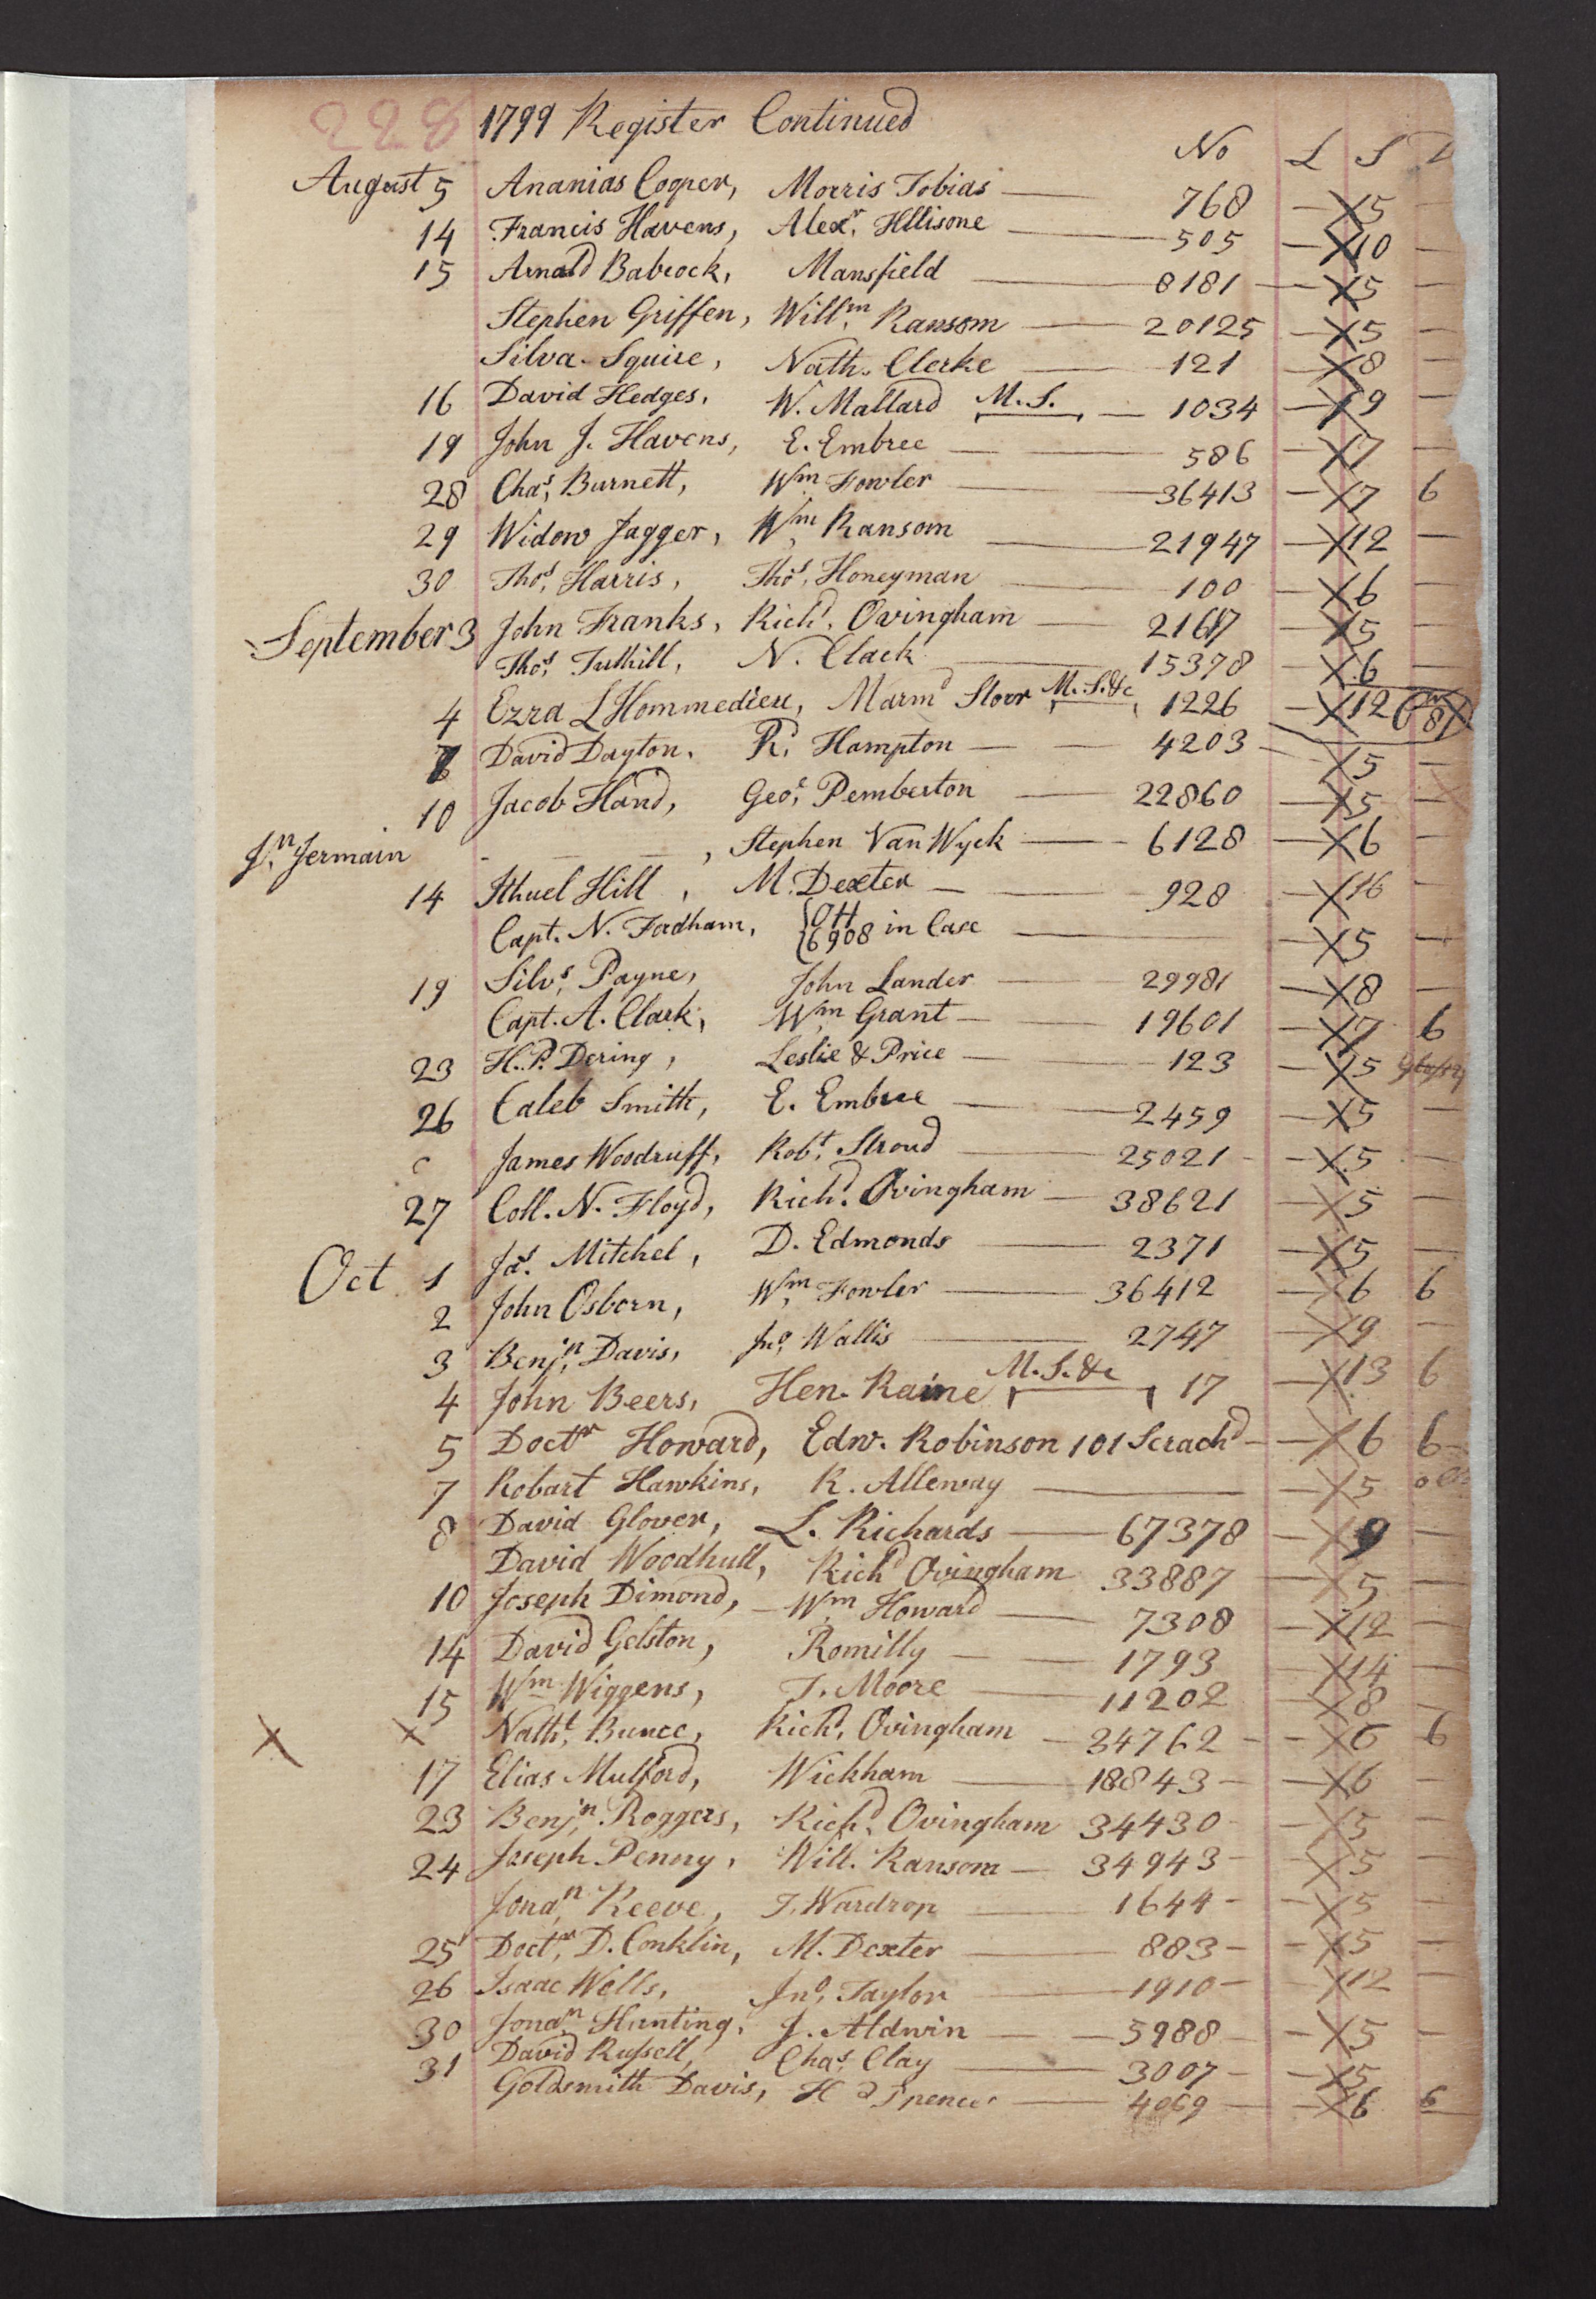 228 1799 Register Continued
No L S D
August 5 Ananias Cooper, Morris Tobias — 768 — X 5
14 Francis Havens, Alexr. Hllisone — 505 — X 10 —
15 Arnald Babcock, Mansfield — 8181 — X 5 —
Stephen Griffen, Willm. Ransom — 20125 — X 5 —
Silva. Squire, Nath. Clerke — 121 — X 8 —
16 David Hedges, W. Mallard M.S. — 1034 — X 9 —
19 John J. Havens, E. Embree — 586 — X 7 —
28 Chas. Burnett, Wm. Fowler — 36413 — X 7 6
29 Widow Jagger, Wm. Ransom — 21947 — X 12 —
30 Thos. Harris, Thos. Honeyman — 100 — X 6 —
September 3 John Franks, Richd. Ovingham — 21617 — X 5 —
Thos. Tuthill, N. Clack — 15378 — X 6 —
4 Ezra L'Hommedieu, Marmd Storr M.S.&c 1226 — X 12
David Dayton, R. Hampton — 4203 — X 5 —
10 Jacob Hand, Geoe. Pemberton — 22860 — X 5 —
Jn. Jermain — , Stephen Van Wyck — 6128 — X 6
14 Ithuel Hill, M. Dexter — 928 — X 16 —
Capt. N. Fordham, {OH 6908 in Case — X 5 —
19 Silvs. Payne, John Lander — 29981 — X 8 —
Capt. A. Clark, Wm Grant — 19601 — X 7 6
23 H.P. Dering, Leslie & Price — 123 — X 5
26 Caleb Smith, E. Embree — 2459 — X 5 —
James Woodruff, Robt. Stroud — 25021 — X 5 —
27 Coll. N. Floyd, Richd. Ovingham — 38621 — X 5 —
Oct 1 Jas. Mitchel, D. Edmonds — 2371 — X 5 —
2 John Osborn, Wm. Fowler — 36412 — X 6 6
3 Benjn. Davis, Jno. Wallis — 2747 — X 9 —
4 John Beers, Hen. Raine M.S.&c 17 — X 13 6
5 Doctr Howard, Edw. Robinson 101 Scrachd — X 6 6
7 Robart Hawkins, R. Alleway — X 5
8 David Glover, L. Richards — 67378 — X 9 —
David Woodhull, Richd Ovingham 33887 — X 5 —
10 Joseph Dimond, — Wm. Howard — 7308 — X 12 —
14 David Gelston, Romilly — 1793 — X 14 —
15 Wm Wiggens, T. Moore — 11202 — X 8 —
X X Natht. Bunce, Richd. Ovingham — 34762 — X 6 6
17 Elias Mulford, Wickham — 18843 — X 6 —
23 Benjn. Roggers, Richd. Ovingham 34430 — X 5 —
24 Joseph Penny, Will. Ransom — 34943 — X 5 —
Jonan. Reeve, T. Wardrop — 1644 — X 5 —
25 Doctr. D. Conklin, M. Dexter — 883 — X 5 —
26 Isaac Wells, Jno. Taylor — 1910 — X 12 —
30 Jonan. Hunting, J. Aldwin — 5988 — X 5 —
31 David Russell, Chas. Clay — 3007 — X 5
Goldsmith Davis, H Spencer — 4069 — X 6 6